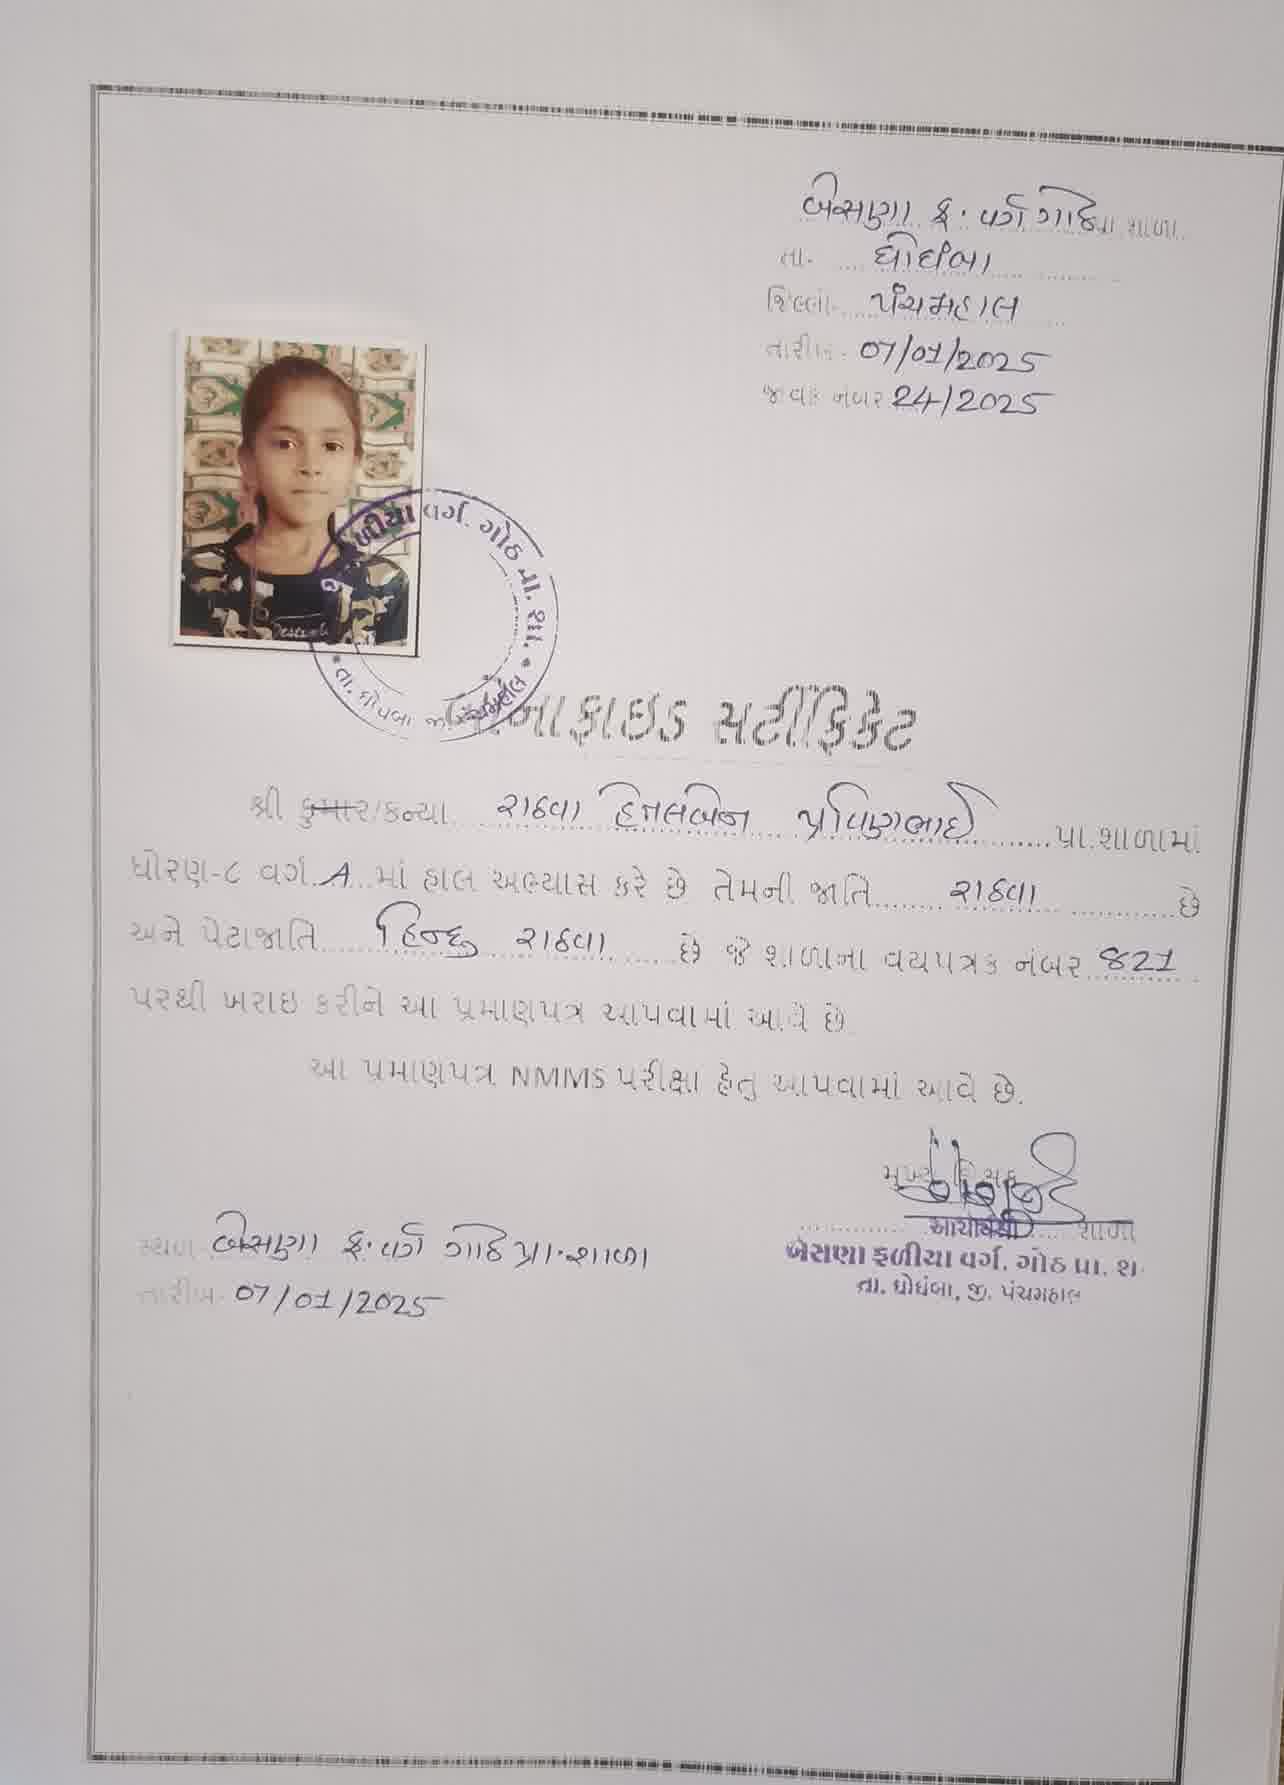 બેસણા ફ. વર્ગ ગોઠ પ્રા. શાળા
તા. ઘોઘંબા
જિલ્લો. પંચમહાલ
તારીખ. 07/01/2025
જાવક નંબર 24/2025
ફળીયા વર્ગ. ગોઠ પ્રા. શા.
તા. ઘોઘંબા જી. પંચમહાલ
બોનાફાઇડ સર્ટીફિકેટ
શ્રી કુમાર/કન્યા રાઠવા હિનલબેન પ્રવિણભાઈ પ્રા.શાળામાં
ધોરણ-૮ વર્ગ A માં હાલ અભ્યાસ કરે છે તેમની જાતિ રાઠવા છે
અને પેટાજાતિ હિન્દુ રાઠવા છે જે શાળાના વયપત્રક નંબર 821
પરથી ખરાઇ કરીને આ પ્રમાણપત્ર આપવામાં આવે છે
આ પ્રમાણપત્ર NMMS પરીક્ષા હેતુ આપવામાં આવે છે.
મુખ્ય શિક્ષક
આચાર્યશ્રી શાળા
બેસણા ફળીયા વર્ગ. ગોઠ પ્રા. શા.
તા. ઘોઘંબા, જી. પંચમહાલ
સ્થળ- બેસણા ફ. વર્ગ ગોઠ પ્રા. શાળા
તારીખ- 07/01/2025